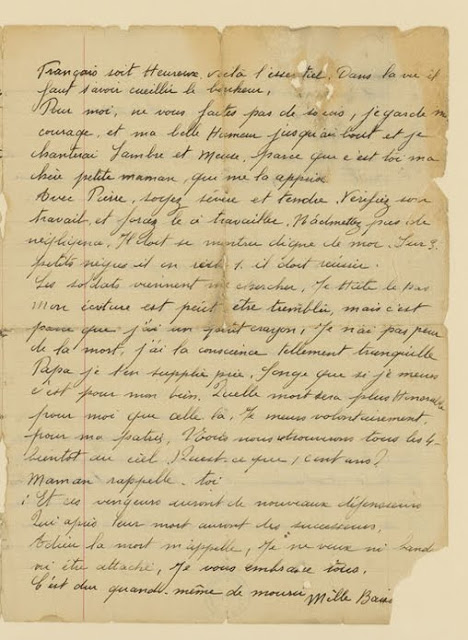 François soit Heureux, voilà l'essentiel. Dans la vie il
faut savoir cueillir le bonheur.
Pour moi, ne vous faites pas de soucis, je garde m
courage et ma belle Humeur jusqu'au bout et je
chanterai Sambre et Meuse, parce que c'est toi ma
chère petite maman, qui me l'a apprise
Avec Pierre, soyez sévère et tendre. Vérifiez son
travail et forcez le à travailler. N'admettez pas de
négligence. Il doit se montrer digne de moi. Sur 3.
petits nègres il en reste 1. il doit réussir.
Les soldats viennent me chercher. Je Hâte le pas
Mon écriture est peut être tremblée, mais c'est
parce que j'ai un petit crayon, Je n'ai pas peur
de la mort, j'ai la conscience tellement tranquille
Papa je t'en supplie prie, Songe que si je meurs
c'est pour mon bien. Quelle mort sera plus Honorable
pour moi que celle là, Je meurs volontairement,
pour ma patrie, nous retrouverons tous les 4-
bientôt au ciel, Qu'est-ce que, cent ans?
Maman rappelle-toi
Et ces vengeurs auront de nouveaux défenseurs
Qui après leur mort auront des successeurs.
Adieu la mort m'appelle, Je ne veux ni band
ni être attaché, Je vous embrasse tous.
C'est dur quand-même de mourir
Mille Bais